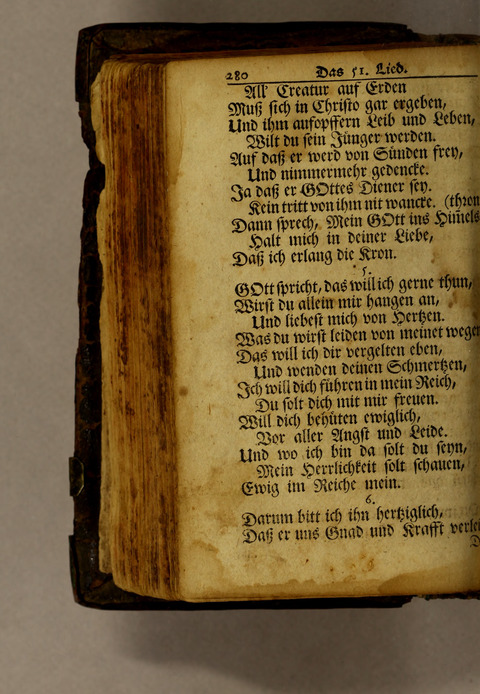 280 Das 51. Lied.
All Creatur auf Erden
Muß sich in Christo gar ergeben,
Und ihm aufopffern Leib und Leben,
Wilt du sein Jünger werden.
Auf daß er werd von Sünden frey,
Und nimmermehr gedencke.
Ja daß er GOttes Diener sey.
Kein tritt von ihm nit wancke. (thron
Dann sprech, Mein GOtt ins Him̃els
Halt mich in deiner Liebe,
Daß ich erlang die Kron.
5.
GOtt spricht, das will ich gerne thun,
Wirst du allein mir hangen an,
Und liebest mich von Hertzen.
Was du wirst leiden von meinet wegen
Das will ich dir vergelten eben,
Und wenden deinen Schmertzen,
Ich will dich führen in mein Reich,
Du solt dich mit mir freuen.
Will dich behüten ewiglich,
Vor aller Angst und Leide.
Und wo ich bin da solt du seyn,
Mein Herrlichkeit solt schauen,
Ewig im Reiche mein.
6.
Darum bitt ich ihn hertziglich,
Daß er uns Gnad und Krafft verlei
D